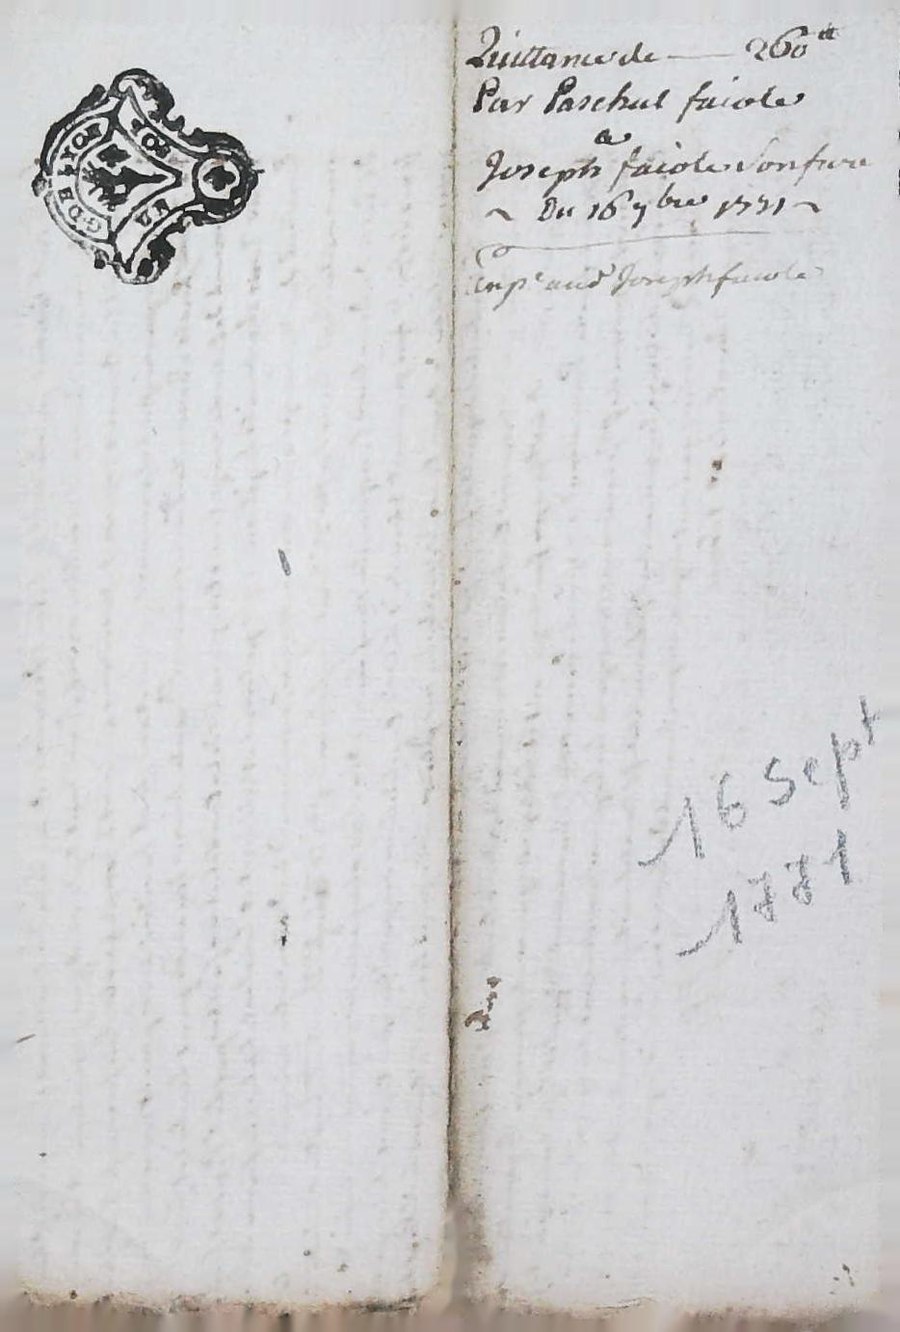 G. DE LYON
UN SOL
Quittance de — 260ᵗᵗ
Par Paschal faiole
a
Joseph faiole Son frere
~ Du 16 7bre 1771 ~
Joseph faiole
16 Sept
1771